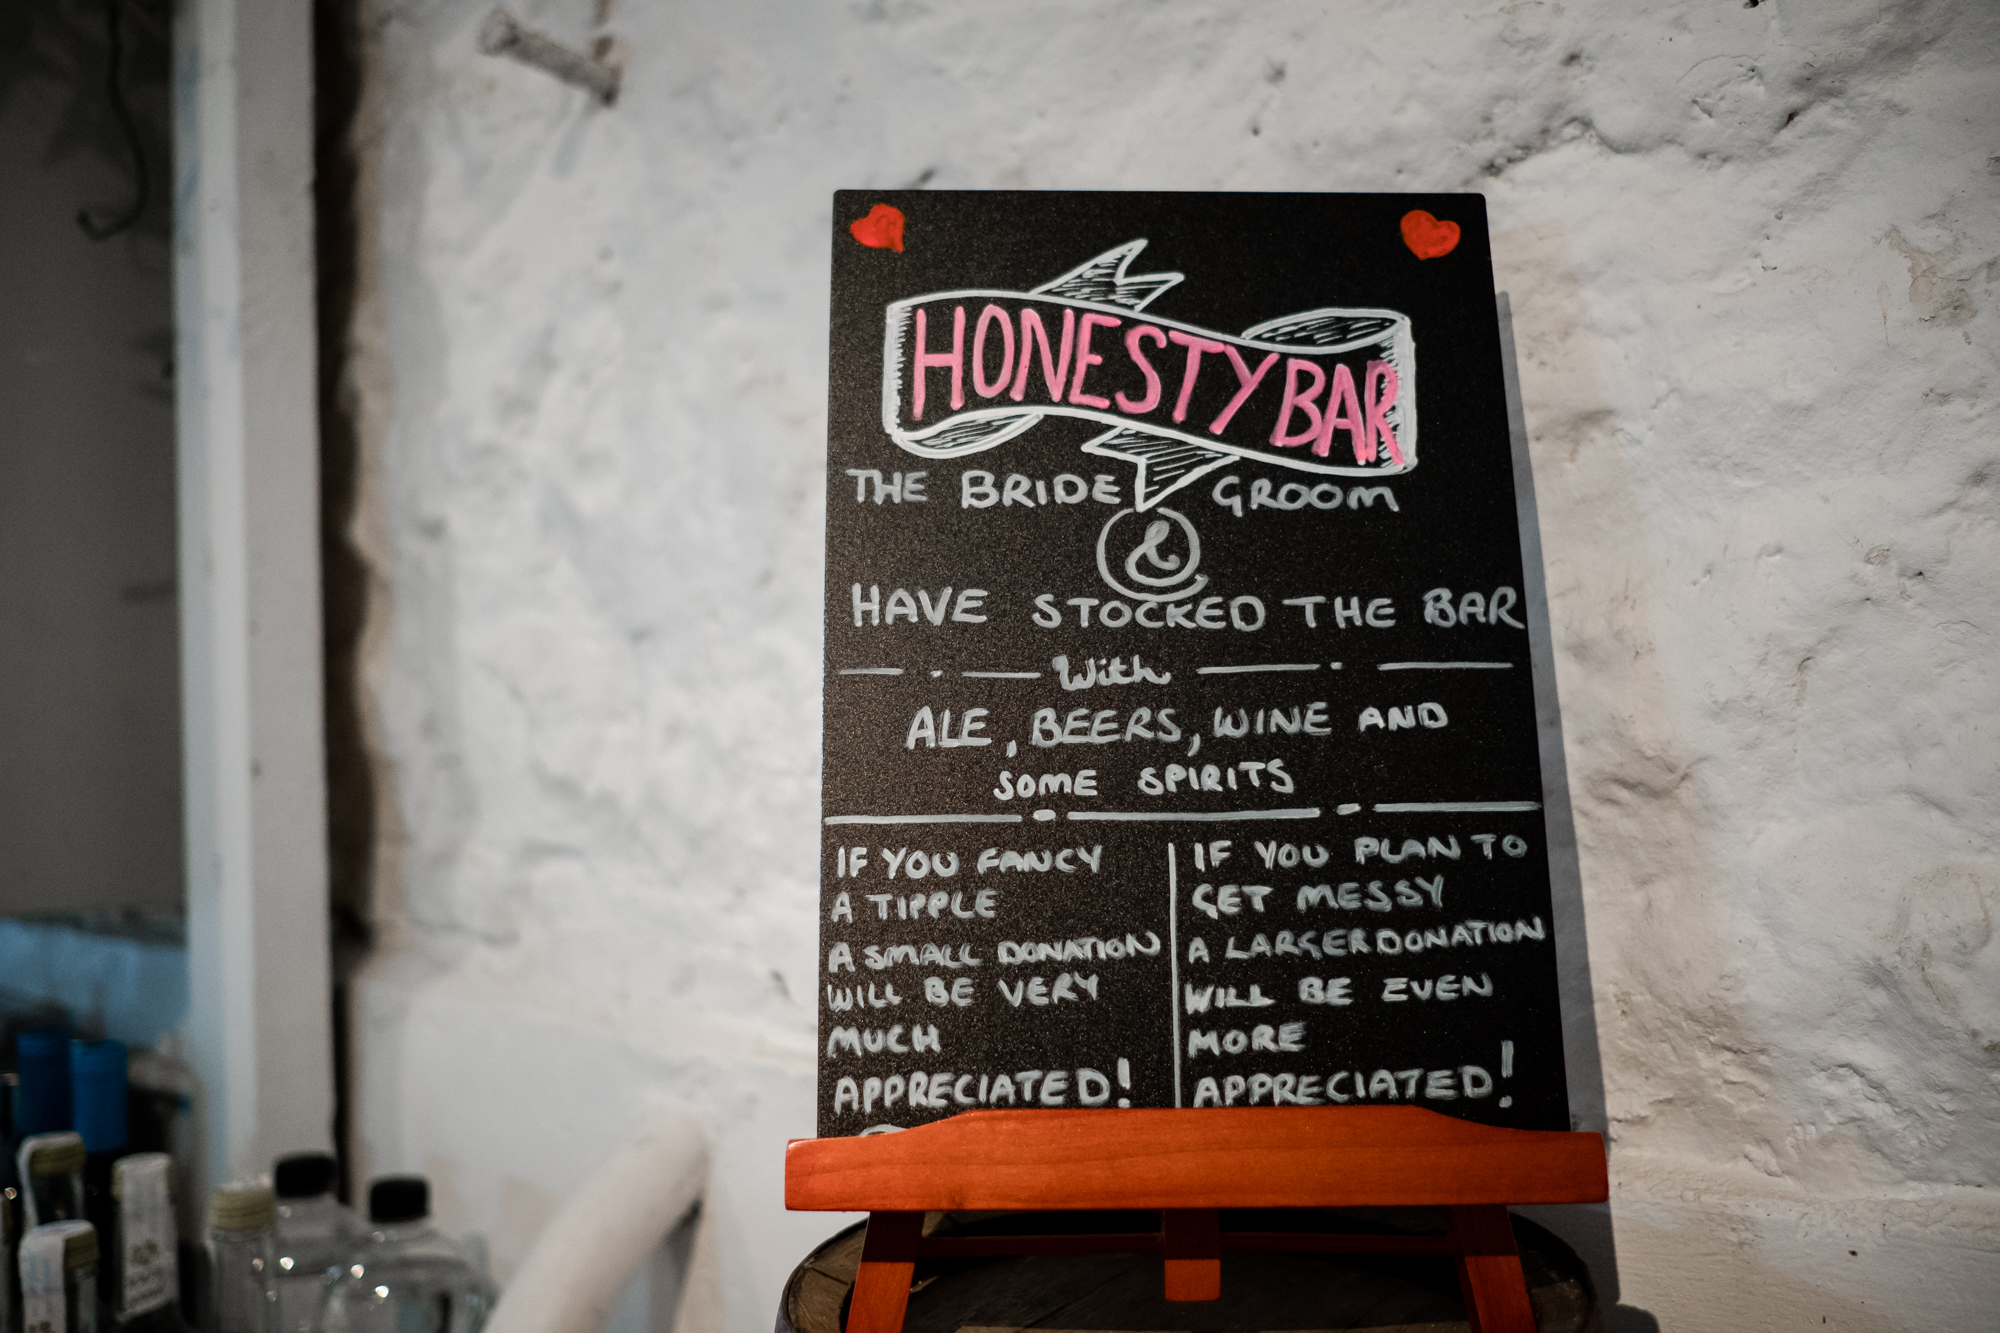 HONESTY BAR
THE BRIDE & GROOM
HAVE STOCKED THE BAR
With
ALE, BEERS, WINE AND
SOME SPIRITS
IF YOU FANCY
A TIPPLE
A SMALL DONATION
WILL BE VERY
MUCH
APPRECIATED!
IF YOU PLAN TO
GET MESSY
A LARGER DONATION
WILL BE EVEN
MORE
APPRECIATED!